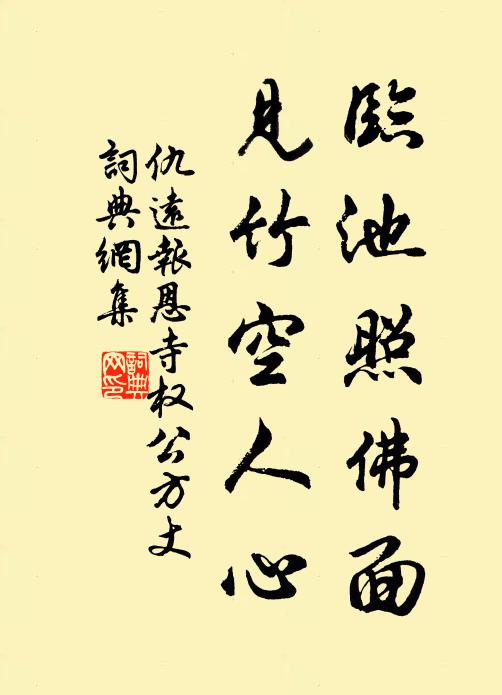 臨池照佛面
見竹空人心
仇遠報恩寺权公方丈
詞典網集
詞典网印